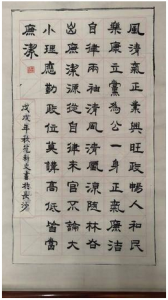 風清氣正業興旺政暢人和民
樂康立黨為公一身正氣廉洁
自律兩袖清風清風隨林谷
幽遠廉潔從自律來官不論大
小理應勤政位莫講高低皆當
廉潔
戊戌年秋新文書於長沙